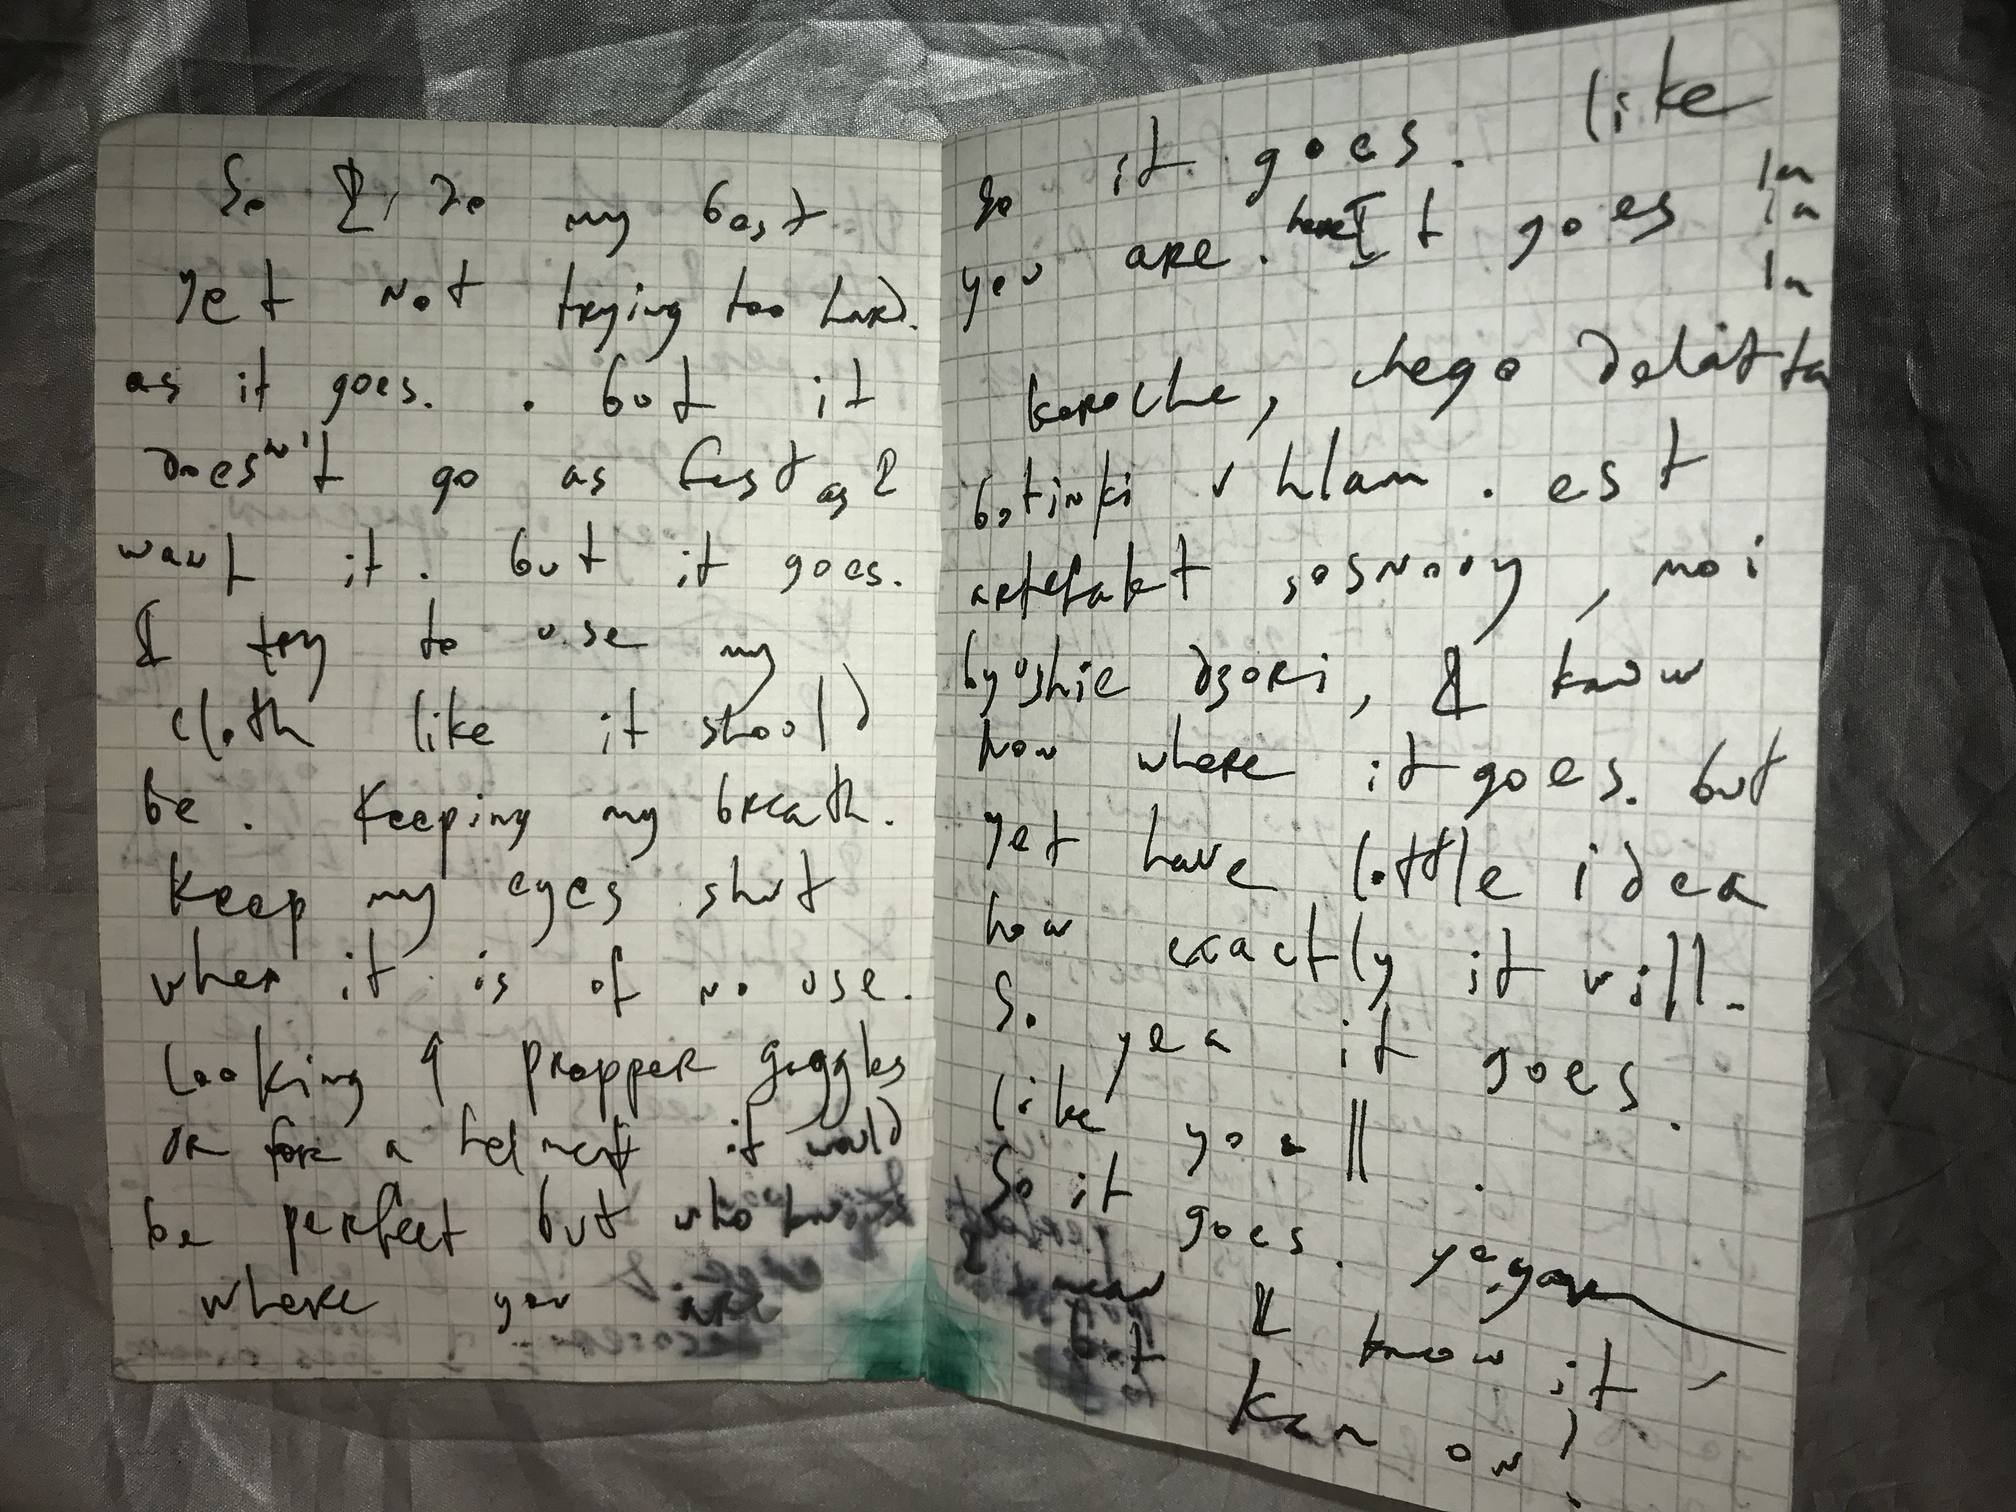 So I, do my best
yet not trying too hard.
as it goes. . but it
doesn't go as fast as I
want it. but it goes.
I try to use my
cloth like it should
be. Keeping my breath.
Keep my eyes shut
when it is of no use.
Looking 4 propper goggles
or for a helmet it would
be perfect but who knows
where you are
So it goes. like
you are. here It goes
la
la
la
koroche, chego delat ta
botinki v hlam. est
artefakt sosnovy, moi
byvshie dzori, I know
now where it goes. but
yet have little idea
how exactly it will.
So yea it goes.
like you all.
So it goes. ye,
I mean I know it,
but Kam on!